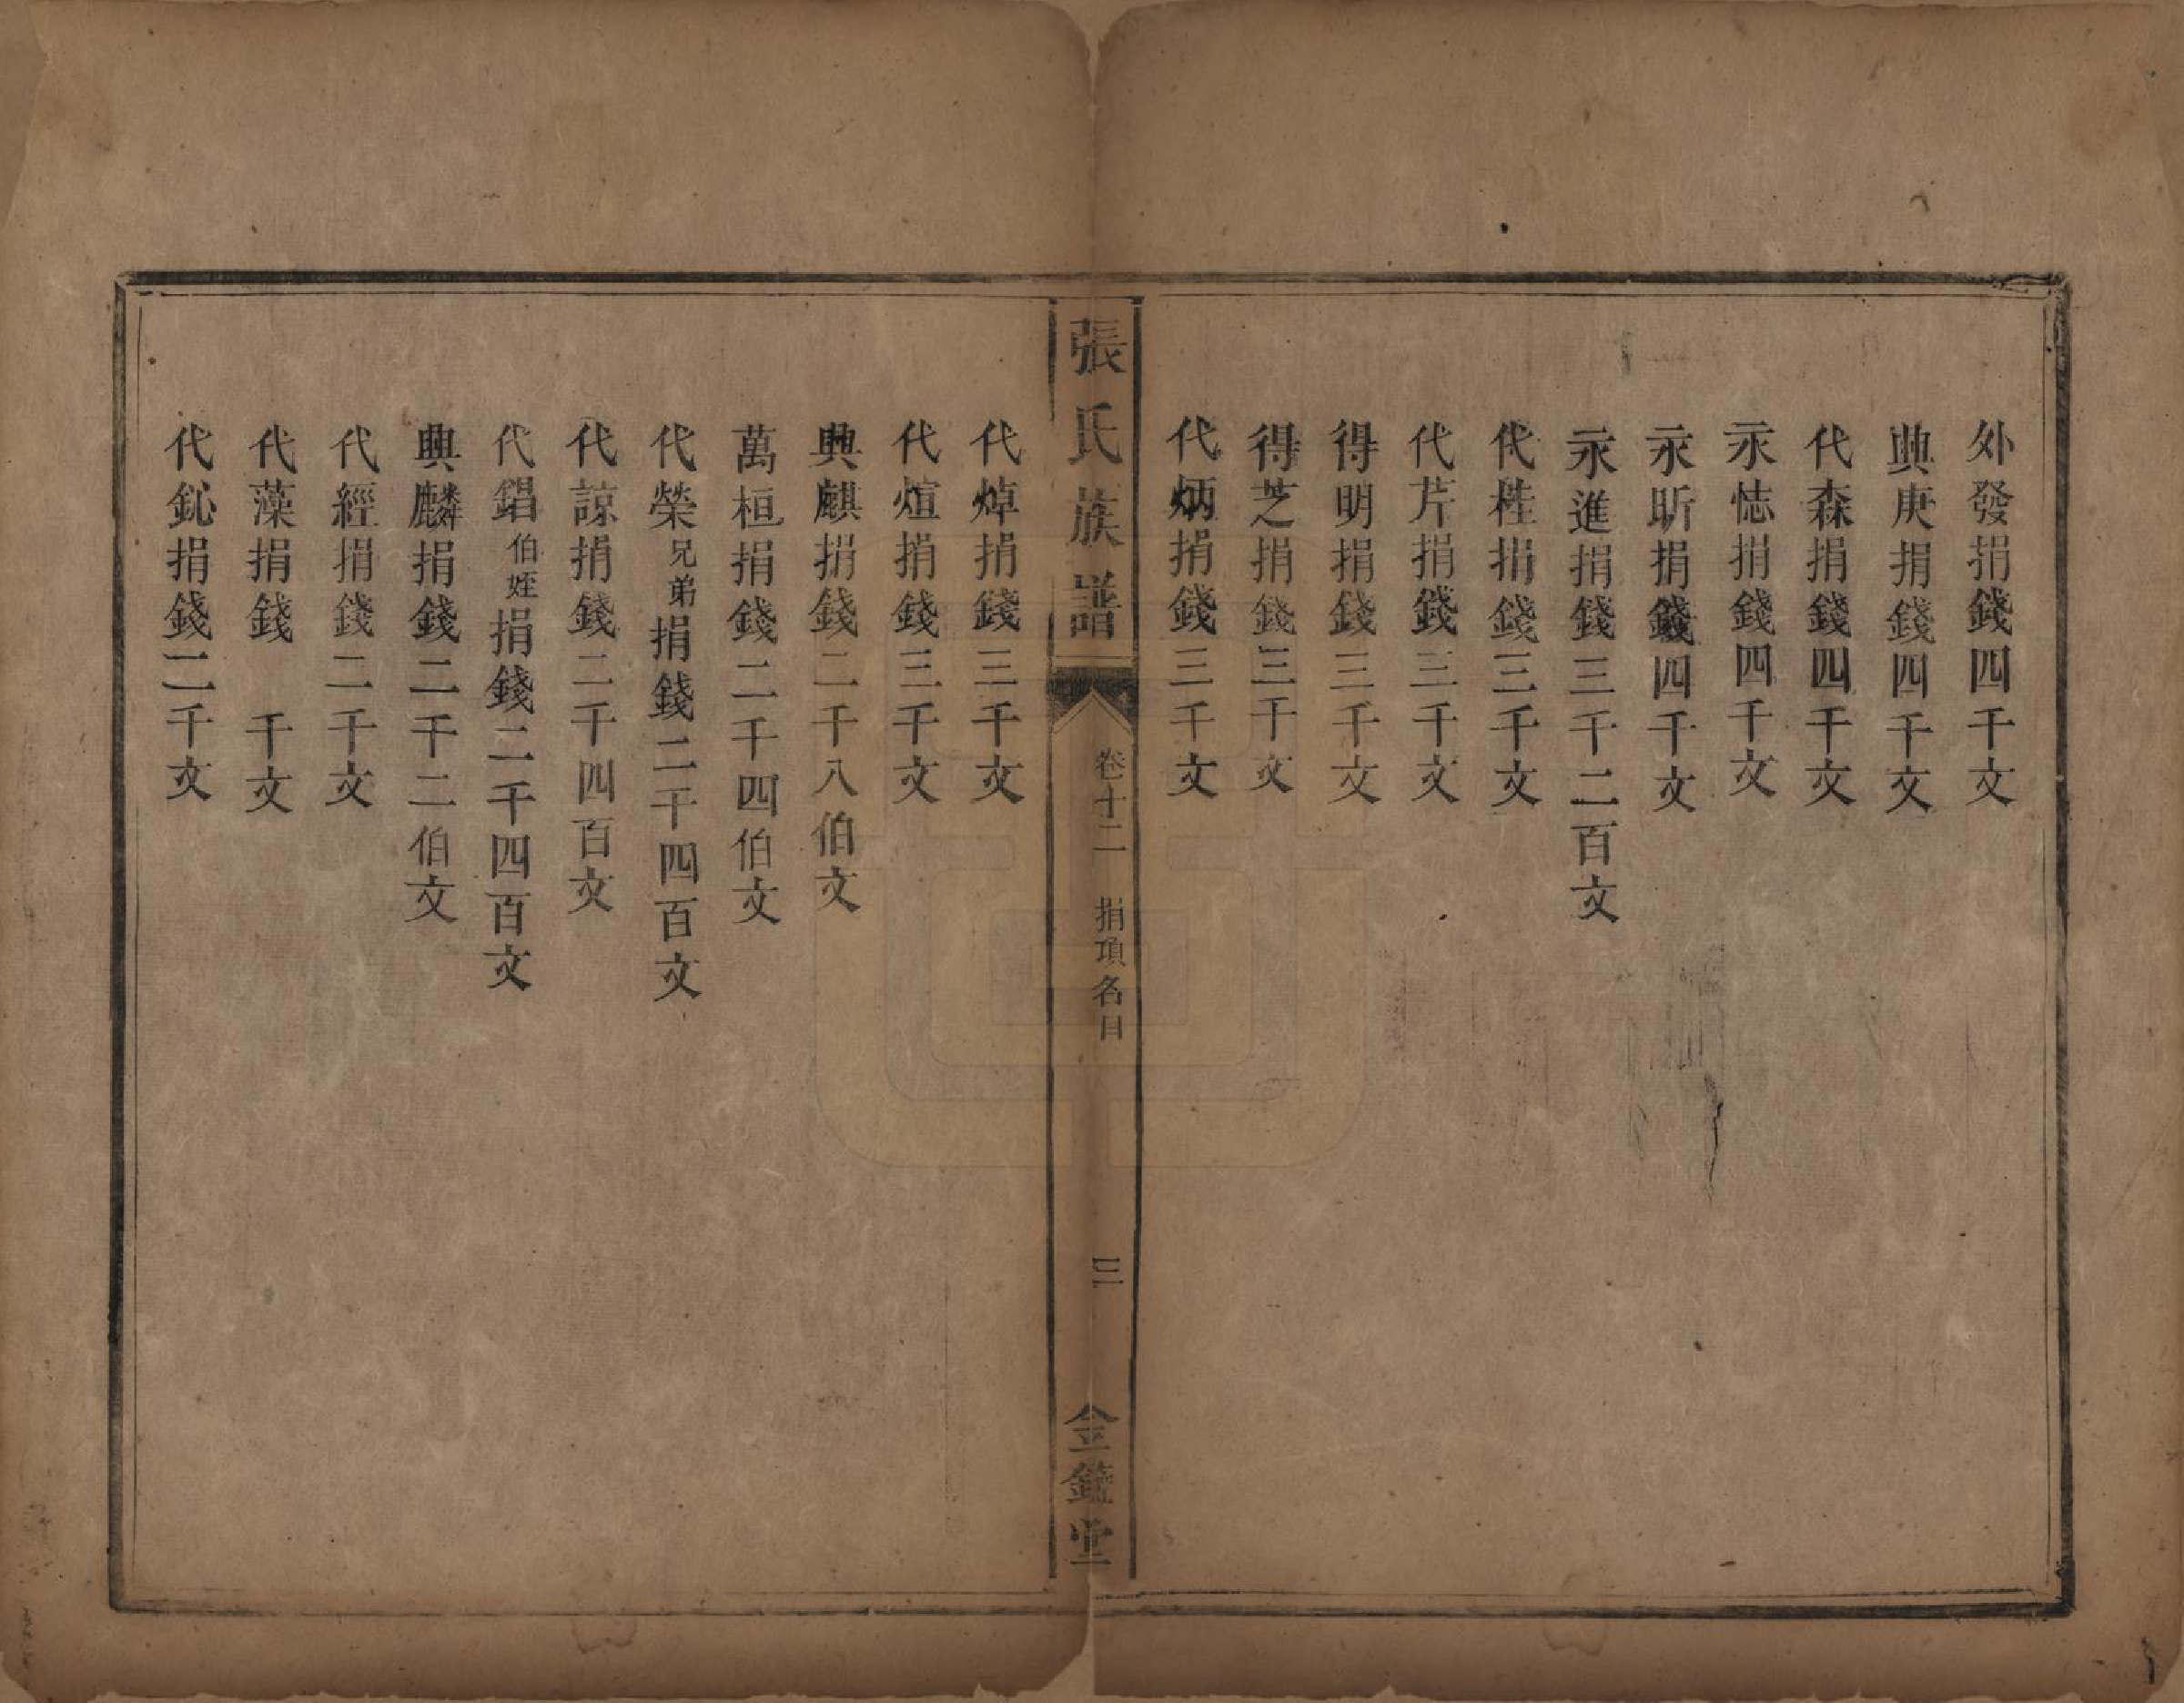 外發捐錢四千文
典庚捐錢四千文
代森捐錢四千文
永𢘆捐錢四千文
永昕捐錢四千文
永進捐錢三千二百文
代桂捐錢三千文
代芹捐錢三千文
得明捐錢三千文
得芝捐錢三千文
代炳捐錢三千文
張氏族譜
卷十二 捐項名目
三
金鑑堂
代焯捐錢三千文
代煊捐錢三千文
興麒捐錢二千八伯文
萬桓捐錢二千四伯文
代榮兄弟捐錢二千四百文
代諒捐錢二千四百文
代錩伯姪捐錢二千四百文
興麟捐錢二千二伯文
代經捐錢二千文
代藻捐錢 千文
代鈊捐錢二千文